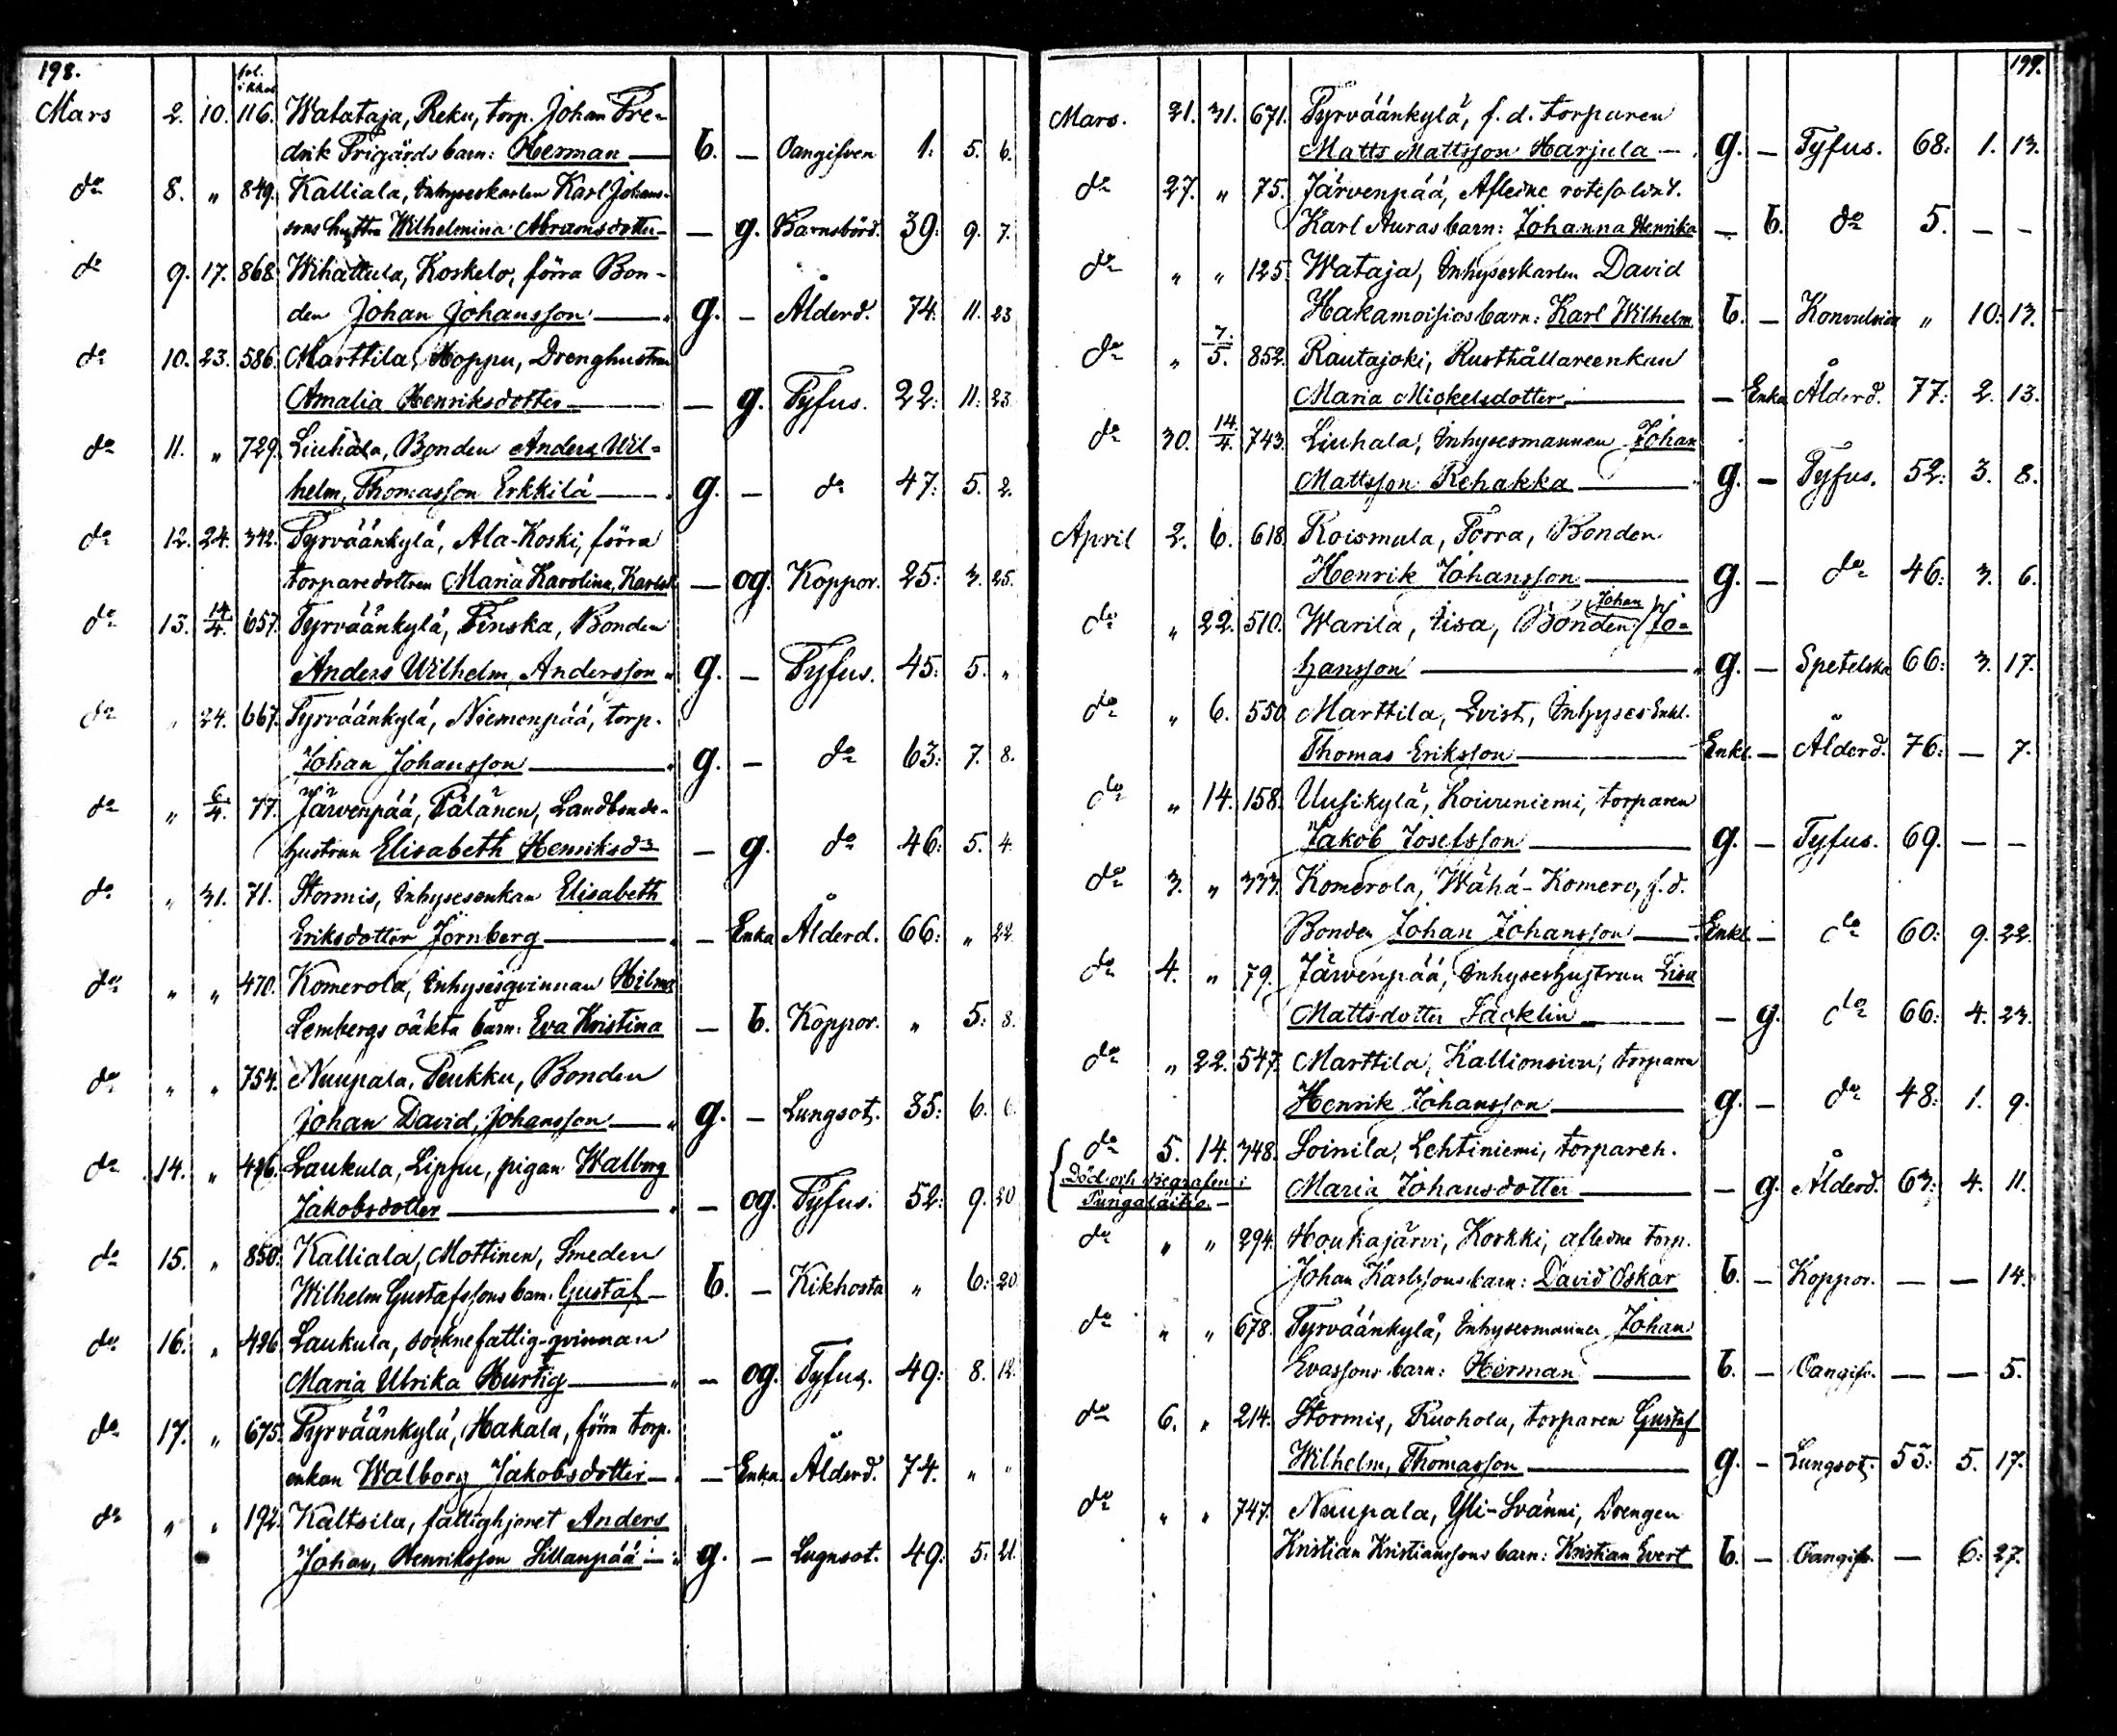 198.
fol.
Mars 2. 10. 116. Watataja, Reku, torp. Johan Fre-
drik Frigårds barn: Herman — b. — Oangifven 1. 5. 6.
do 8. „ 849. Kalliala, Inhyseskarlen Karl Johans-
sons hustru Wilhelmina Abramsdotter — — g. Barnsbörd. 39. 9. 7.
do 9. 17. 868. Wihattula, Koskelo, förra Bon-
den Johan Johansson — g. — Ålderd. 74. 11. 23
do 10. 23. 586. Marttila, Hoppu, Drenghustrun
Amalia Henriksdotter — — g. Tyfus. 22: 11: 23.
do 11. „ 729. Liuhala, Bonden Anders Wil-
helm Thomasson Erkkilä — g. — do 47: 5. 2.
do 12. 24. 342. Tyrväänkylä, Ala-Koski, förra
torparedottren Maria Karolina Karlsd. — og. Koppor. 25: 3. 25.
do 13. 14/4. 657. Tyrväänkylä, Finska, Bonden
Anders Wilhelm Andersson „ g. — Tyfus. 45: 5. „
do „ 24. 667. Tyrväänkylä, Niemenpää, torp.
Johan Johansson — g. — do 63: 7. 8.
do „ 6/4. 77. Järvenpää, Pälänen, Landbonde-
hustrun Elisabeth Henriksdr — g. do 46: 5. 4.
do „ 31. 71. Stormis, Inhysesenkan Elisabeth
Eriksdotter Jernberg — — Enka Ålderd. 66: „ 22
do „ „ 470. Komerola, Inhysesqvinnan Hilma
Lembergs oäkta barn: Eva Kristina — b. Koppor. „ 5: 8.
do „ „ 754. Nuupala, Peukku, Bonden
Johan David Johansson — g. — Lungsot. 35: 6. 6.
do 14. „ 426. Laukula, Lippu, pigan Walborg
Jakobsdotter — — og. Tyfus. 52: 9. 20
do 15. „ 850. Kalliala, Mottinen, Smeden
Wilhelm Gustafssons barn: Gustaf — b. — Kikhosta „ 6: 20.
do 16. „ 426 Laukula, socknefattig-qvinnan
Maria Ulrika Hurtig — — og. Tyfus. 49: 8. 12.
do 17. „ 675. Tyrväänkylä, Hakala, förra torp.
enkan Walborg Jakobsdotter — — Enka. Ålderd. 74. „ „
do „ „ 192. Kaltsila, fattighjonet Anders
Johan Henriksson Sillanpää — g. — Lugnsot. 49: 5. 21.
199.
Mars. 21. 31. 671. Tyrväänkylä, f. d. torparen
Matts Mattsson Harjula — g. — Tyfus. 68: 1. 13.
do 27. „ 75. Järvenpää, Aflidne rotesoldat.
Karl Auras barn: Johanna Henrika — b. do 5. — —
do „ „ 125. Wataja, Inhyseskarlen David
Hakamoisios barn: Karl Wilhelm b. — Konvulsion „ 10: 13.
do „ 7/5. 852. Rautajoki, Rusthållareenkan
Maria Mickelsdotter — — Enka Ålderd. 77: 2. 13.
do 30. 14/4. 743. Liuhala, Inhysesmannen Johan
Mattsson Rehakka — g. — Tyfus. 52: 3. 8.
April 2. 6. 618. Roismala, Torra, Bonden
Henrik Johansson — g. — do 46: 3. 6.
do „ 22. 510. Warila, Iisa, Bonden Johan Jo-
hansson — g. — Spetelska 66: 3. 17.
do „ 6. 550. Marttila, Qvist, Inhyses Enkl.
Thomas Eriksson — Enkl. — Ålderd. 76: — 7.
do „ 14. 158. Uusikylä, Koivuniemi, torparen
Jakob Josefsson — g. — Tyfus. 69. — —
do 3. „ 333. Komerola, Wähä-Komero, f. d.
Bonden Johan Johansson — Enkl. — do 60: 9. 22.
do 4. „ 79. Järvenpää, Inhyseshustrun Lisa
Mattsdotter Säcklin — — g. do 66: 4. 23.
do „ 22. 547. Marttila, Kallionsivu, torparen
Henrik Johansson — g. — do 48: 1. 9.
do 5. 14. 348. Soinila, Lehtiniemi, torpareh.
Död och begrafen i Pungalaitio. — Maria Johansdotter — — g. Ålderd. 63: 4. 11.
do „ „ 294. Houhajärvi, Korkki, aflidne torp.
Johan Karlssons barn: David Oskar b. — Koppor. — — 14.
do „ „ 678. Tyrväänkylä, Inhysesmannen Johan
Evassons barn: Herman — b. — Oangifv. — — 5.
do 6. „ 214. Stormis, Ruohola, torparen Gustaf
Wilhelm Thomasson — g. — Lungsot. 53: 5. 17.
do „ „ 747. Nuupala, Yli-Svänni, Drengen
Kristian Kristianssons barn: Kristian Evert b. — Oangifv. — 6: 27.